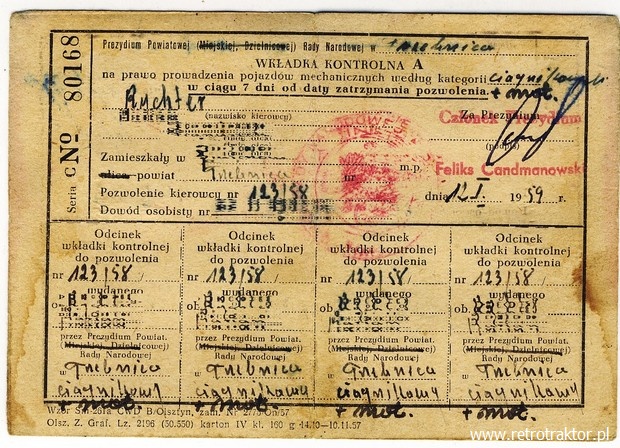 Seria C No 80168
Prezydium Powiatowej (Miejskiej, Dzielnicowej) Rady Narodowej w Trzebnica
WKŁADKA KONTROLNA A
na prawo prowadzenia pojazdów mechanicznych według kategorii ciągnikowych
w ciągu 7 dni od daty zatrzymania pozwolenia.
+ mot.
Rychter
(nazwisko kierowcy)
Za Prezydium
Członek Prezydium
(podpis)
Zamieszkały w
ulica powiat Trzebnica nr
m.p.
Feliks Candmanowski
Pozwolenie kierowcy nr 123/58
dnia 12 I 1959 r.
Dowód osobisty nr
Odcinek Odcinek Odcinek Odcinek
wkładki kontrolnej wkładki kontrolnej wkładki kontrolnej wkładki kontrolnej
do pozwolenia do pozwolenia do pozwolenia do pozwolenia
nr 123/58 nr 123/58 nr 123/58 nr 123/58
wydanego wydanego wydanego wydanego
ob. ob. ob. ob.
przez Prezydium Powiat. przez Prezydium Powiat. przez Prezydium Powiat. przez Prezydium Powiat.
(Miejskiej, Dzielnicowej) (Miejskiej, Dzielnicowej) (Miejskiej, Dzielnicowej) (Miejskiej, Dzielnicowej)
Rady Narodowej Rady Narodowej Rady Narodowej Rady Narodowej
w Trzebnica w Trzebnica w Trzebnica w Trzebnica
ciągnikowy ciągnikowy ciągnikowy ciągnikowy
+ mot. + mot. + mot. + mot.
Wzór Sm-26fa CWD B/Olsztyn, zam. Nr 2775-On/57
Olsz. Z. Graf. Lz. 2196 (50.550) karton IV kl. 160 g 14.10—10.11.57
www.retrotraktor.pl